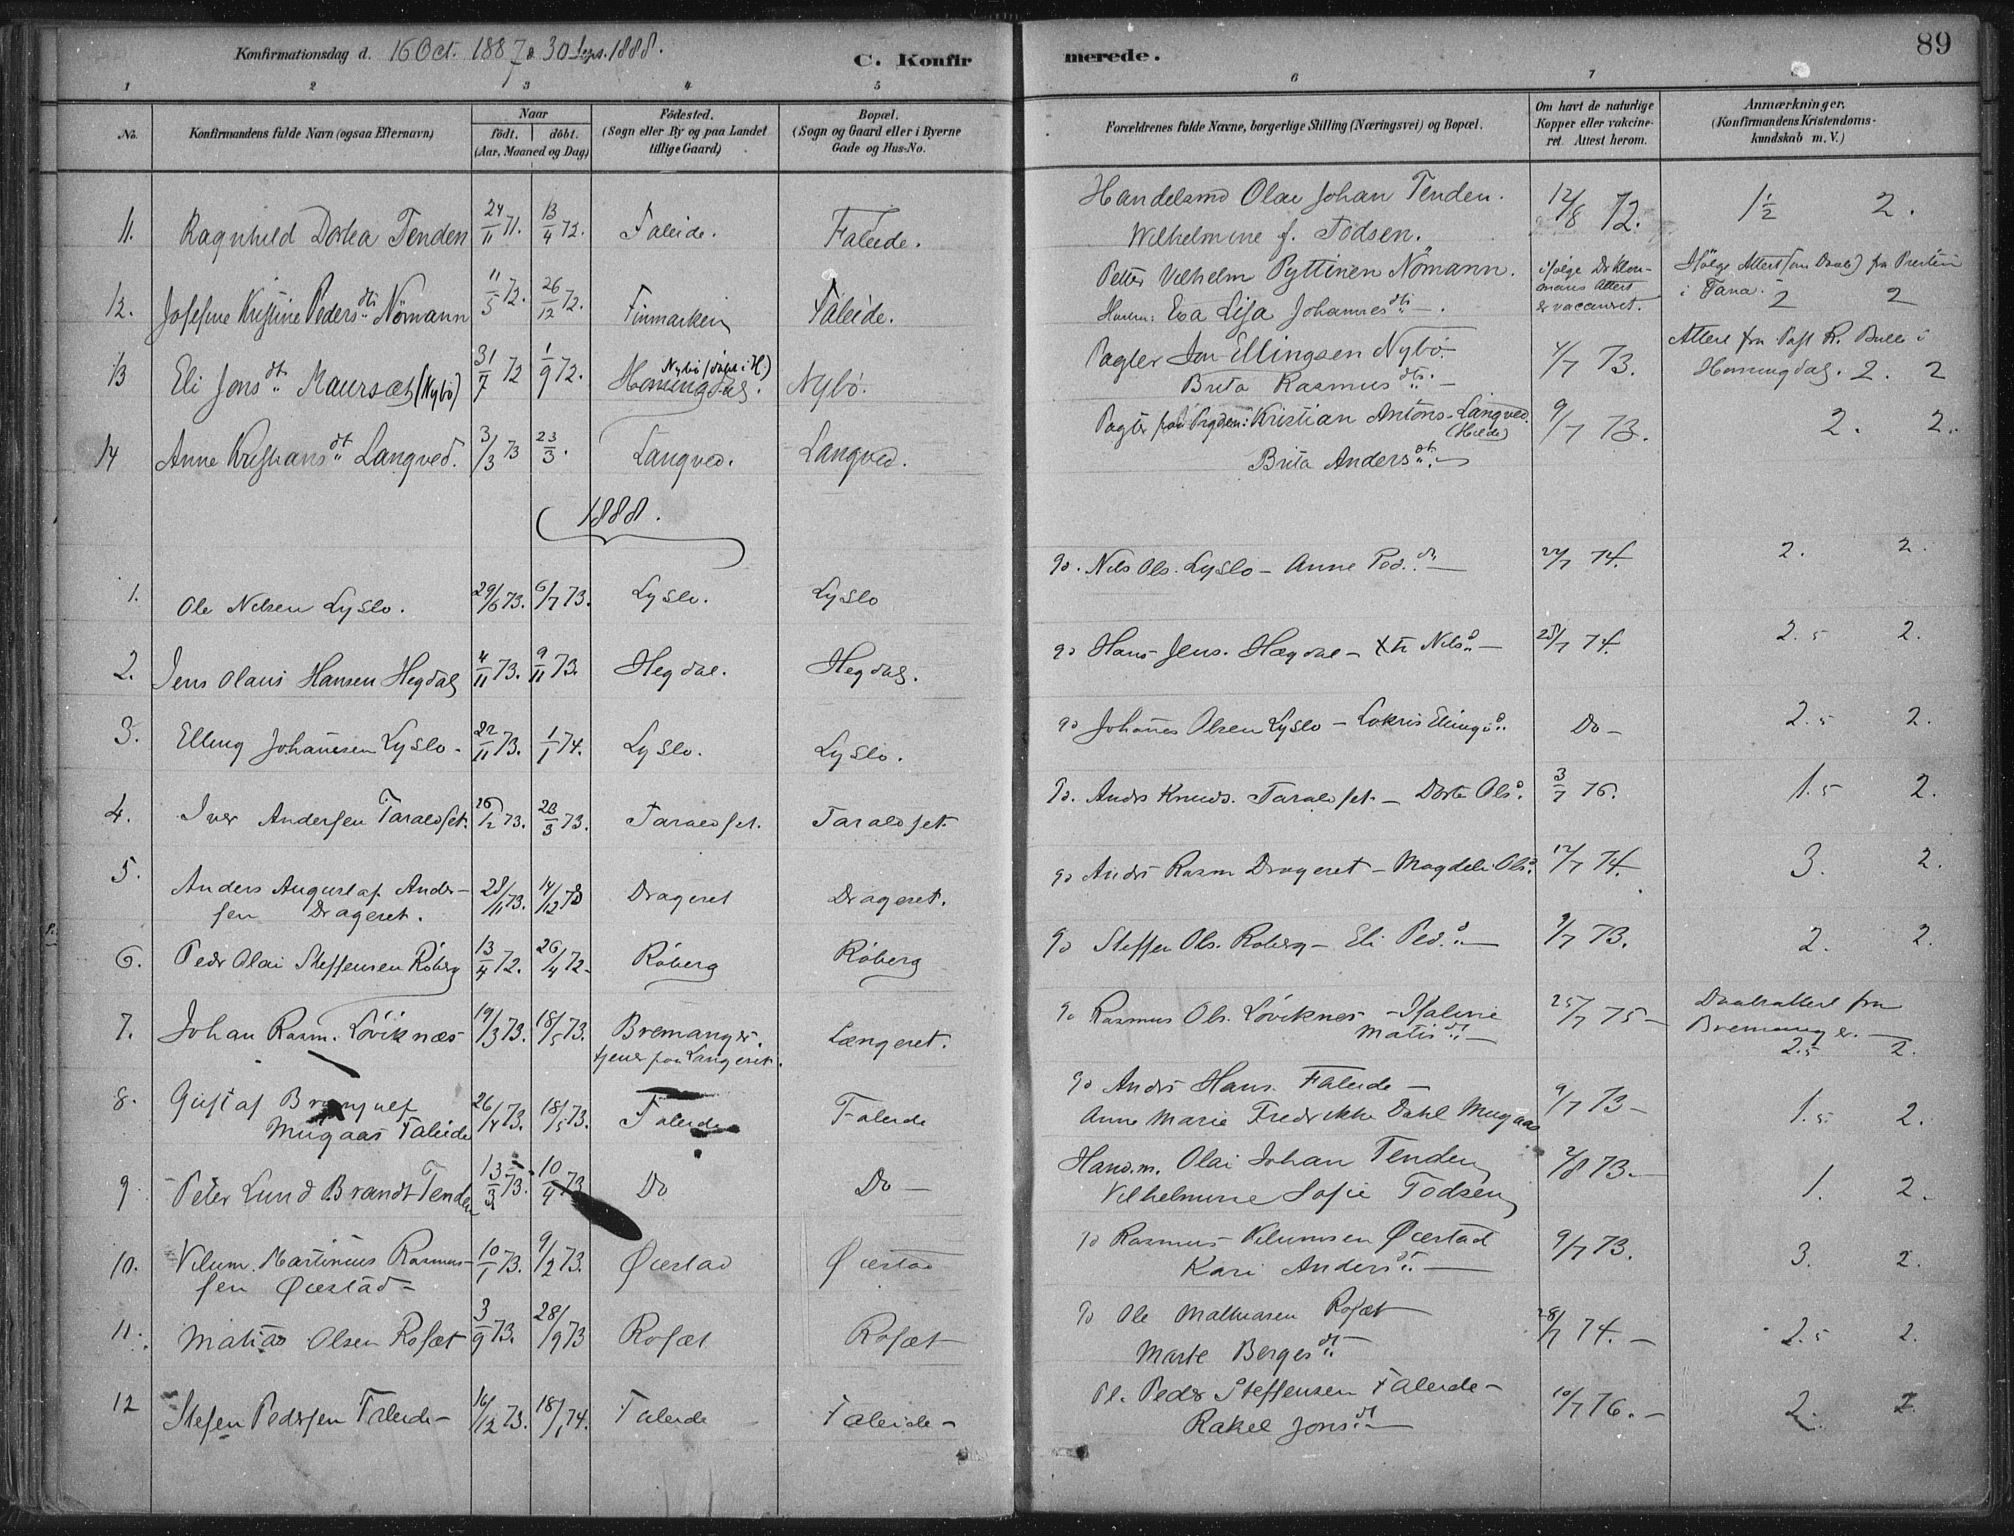 Konfirmationsdag d. 16 Oct. 1887 & 30 Sept. 1888.
C. Konfirmerede.
89
1 2 3 4 5 6 7
No.
Konfirmandens fulde Navn (ogsaa Efternavn)
Naar
født. døbt.
(Aar, Maaned og Dag)
Fødested.
(Sogn eller By og paa Landet
tillige Gaard)
Bopæl.
(Sogn og Gaard eller i Byerne
Gade og Hus-No.
Forældrenes fulde Navne, borgerlige Stilling (Næringsvei) og Bopæl.
Om havt de naturlige
Kopper eller vakcine-
ret. Attest herom.
Anmærkninger.
(Konfirmandens Kristendoms-
kundskab m. V.)
11. Ragnhild Dortea Tenden 24/11 71. 13/4 72. Faleide. Faleide.
Handelsmd Olai Johan Tenden.
Wilhelmine f. Todsen.
12/8 72. 1½ 2.
12. Josefine Kristine Pedersdtr Nømann 11/5 72. 26/12 72. Finmarken Faleide.
Petter Vilhelm Pyttinen Nømann.
Hustru: Eva Lisa Johannesdtr.
ifølge Dr Klou-
mans Attest
er vaccineret.
Ifølge Attest (om Daab) fra Presten
i Tana. 2 2
13 Eli Jonsdt. Maursæt (Nybø) 31/7 72 1/9 72. Nybø (døbt i H.)
Horningdal. Nybø.
Pagter Jon Ellingsen Nybø
Brita Rasmusdtr.
4/7 73. Attest fra Past R. Bull i
Horningdal. 2. 2
14 Anne Kristiansdt Langved. 3/3 73 23/3. Langved. Langved.
Kristian Antons. Langved.
(Hilde)
Brita Andersdt.
9/7 73. 2. 2.
1888.
1. Ole Nilsen Lyslo. 29/6 73. 6/7 73. Lyslo. Lyslo
gd. Nils Ols. Lyslo - Anne Ped.dt 24/7 74. 2. 2.
2. Jens Olaus Hansen Hegdal 4/11 73. 9/11 73. Hegdal. Hegdal.
gd Hans Jens. Hægdal - Nilsd 28/7 74. 2.5 2.
3. Elling Johannesen Lyslo. 22/11 73. 1/1 74. Lyslo. Lyslo.
gd Johannes Olsen Lyslo - Lokris Ellingsd. Do - 2.5 2.
4. Iver Andersen Taraldset. 26/2 73. 23/3 73. Taraldset. Taraldset.
gd. Anders Knuds. Taraldset. - Dorte Olsd. 3/7 76. 1.5 2.
5. Anders Augustaf Ander-
sen Drageset. 28/11 73. 14/12 73 Drageset Drageset.
gd Anders Rasm Drageset - Magdeli Olsd. 12/7 74. 3. 2.
6. Peder Olai Steffensen Røberg 13/4 72. 26/4 72. Røberg Røberg
gd Steffen Ols. Røberg - Eli Ped.d 9/7 73. 2. 2.
7. Johan Rasm. Løviknæs 19/3 73. 18/5 73. Bremanger.
tjener paa Langeset. Længeset.
gd Rasmus Ols. Løviknes -
Matisdt
25/7 75 - Daabsattest fra
Bremanger.
2.5 2.
8. Gustaf
Mugaas Faleide 26/4 73. 18/5 73. Faleide Faleide
gd Anders Hans. Faleide -
Anne Marie Fredrikke Dahl Mugaas
9/7 73 - 1.5. 2.
9 Peter Lund Brandt Tenden 13/3 73. 10/4 73. Do Do -
Hand.m. Olai Johan Tenden
Vilhelmine Sofie Todsen
2/8 73. - 1. 2.
10. Vilum. Martinius Rasmus-
sen Østestad - 10/1 73. 9/2 73. Østestad Østestad
gd Rasmus Vilumsen Østestad
Kari Andersdt.
9/7 73. 3. 2.
11. Matias Olsen Rosæt 3/9 73. 28/9 73 Rosæt Rosæt
gd Ole Mathiasen Rosæt
Marte Bergesdt.
28/7 74. - 2.5 2.
12 Stefen Pedersen Faleide - 16/12 73. 18/1 74. Faleide Faleide -
Pl. Peder Steffensen Faleide -
Rakel Jonsdt.
10/7 76. - 2. 2.